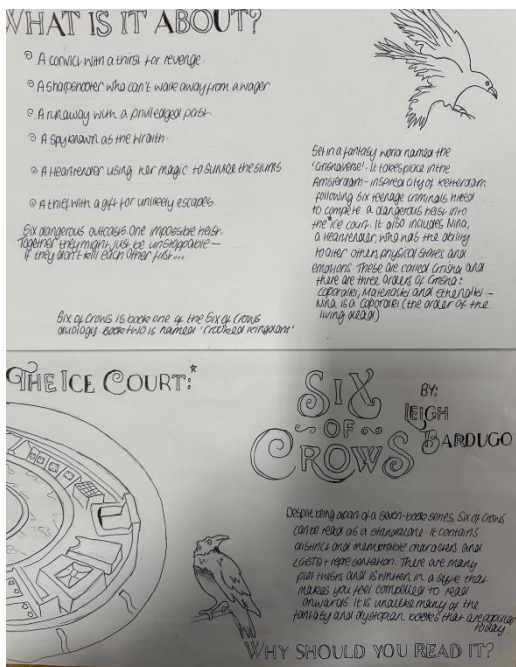 WHAT IS IT ABOUT?
A convict with a thirst for revenge.
A sharpshooter who can't walk away from a wager
A runaway with a priviledged past.
A spy known as the Wraith
A Heartrender using her magic to survive the slums
A thief with a gift for unlikely escapes.
Six dangerous outcasts one impossible heist.
Together they might just be unstoppable –
if they don't kill each other first...
Six of Crows is book one of the Six of Crows
duology. Book two is named 'Crooked Kingdom'
Set in a fantasy world named the
'Grishaverse'. It takes place in the
Amsterdam-inspired city of Ketterdam
following six teenage criminals hired
to compete a dangerous heist into
the *ice court. It also includes Nina,
a Heartrender, who has the ability
to alter others physical states and
emotions. These are called Grisha and
there are three orders of Grisha:
Coporalki, Materialki and Etherialki –
Nina is a Coporalki (the order of the
living dead)
THE ICE COURT:*
SIX
OF
CROWS
BY:
LEIGH
BARDUGO
Despite being apart of a seven-book series, Six of Crows
can be read as a standalone. It contains
distinct and memorable characters and
LGBTQ+ representation. There are many
plot twists and is written in a style that
makes you feel compelled to read
onwards. It is unalike many of the
fantasy and dystopian books that are popular
today.
WHY SHOULD YOU READ IT?